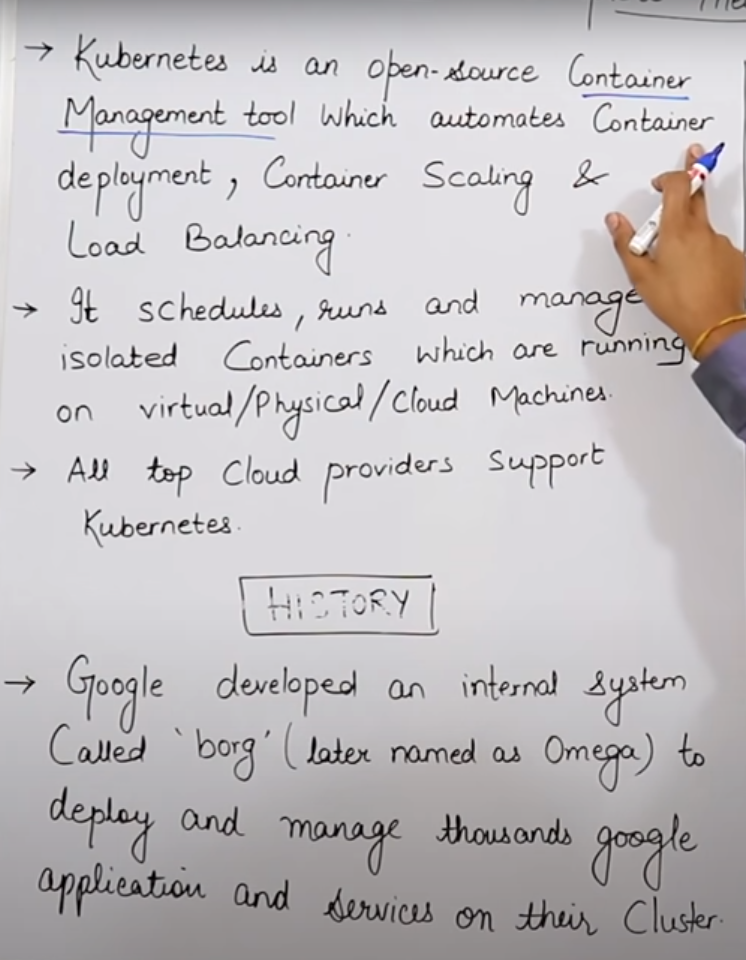 → Kubernetes is an open-source Container
Management tool which automates Container
deployment, Container Scaling &
Load Balancing.
→ It schedules, runs and manage
isolated Containers which are running
on virtual/Physical/Cloud Machines.
→ All top Cloud providers support
Kubernetes.
HISTORY
→ Google developed an internal system
Called 'borg' (later named as Omega) to
deploy and manage thousands google
application and services on their Cluster.